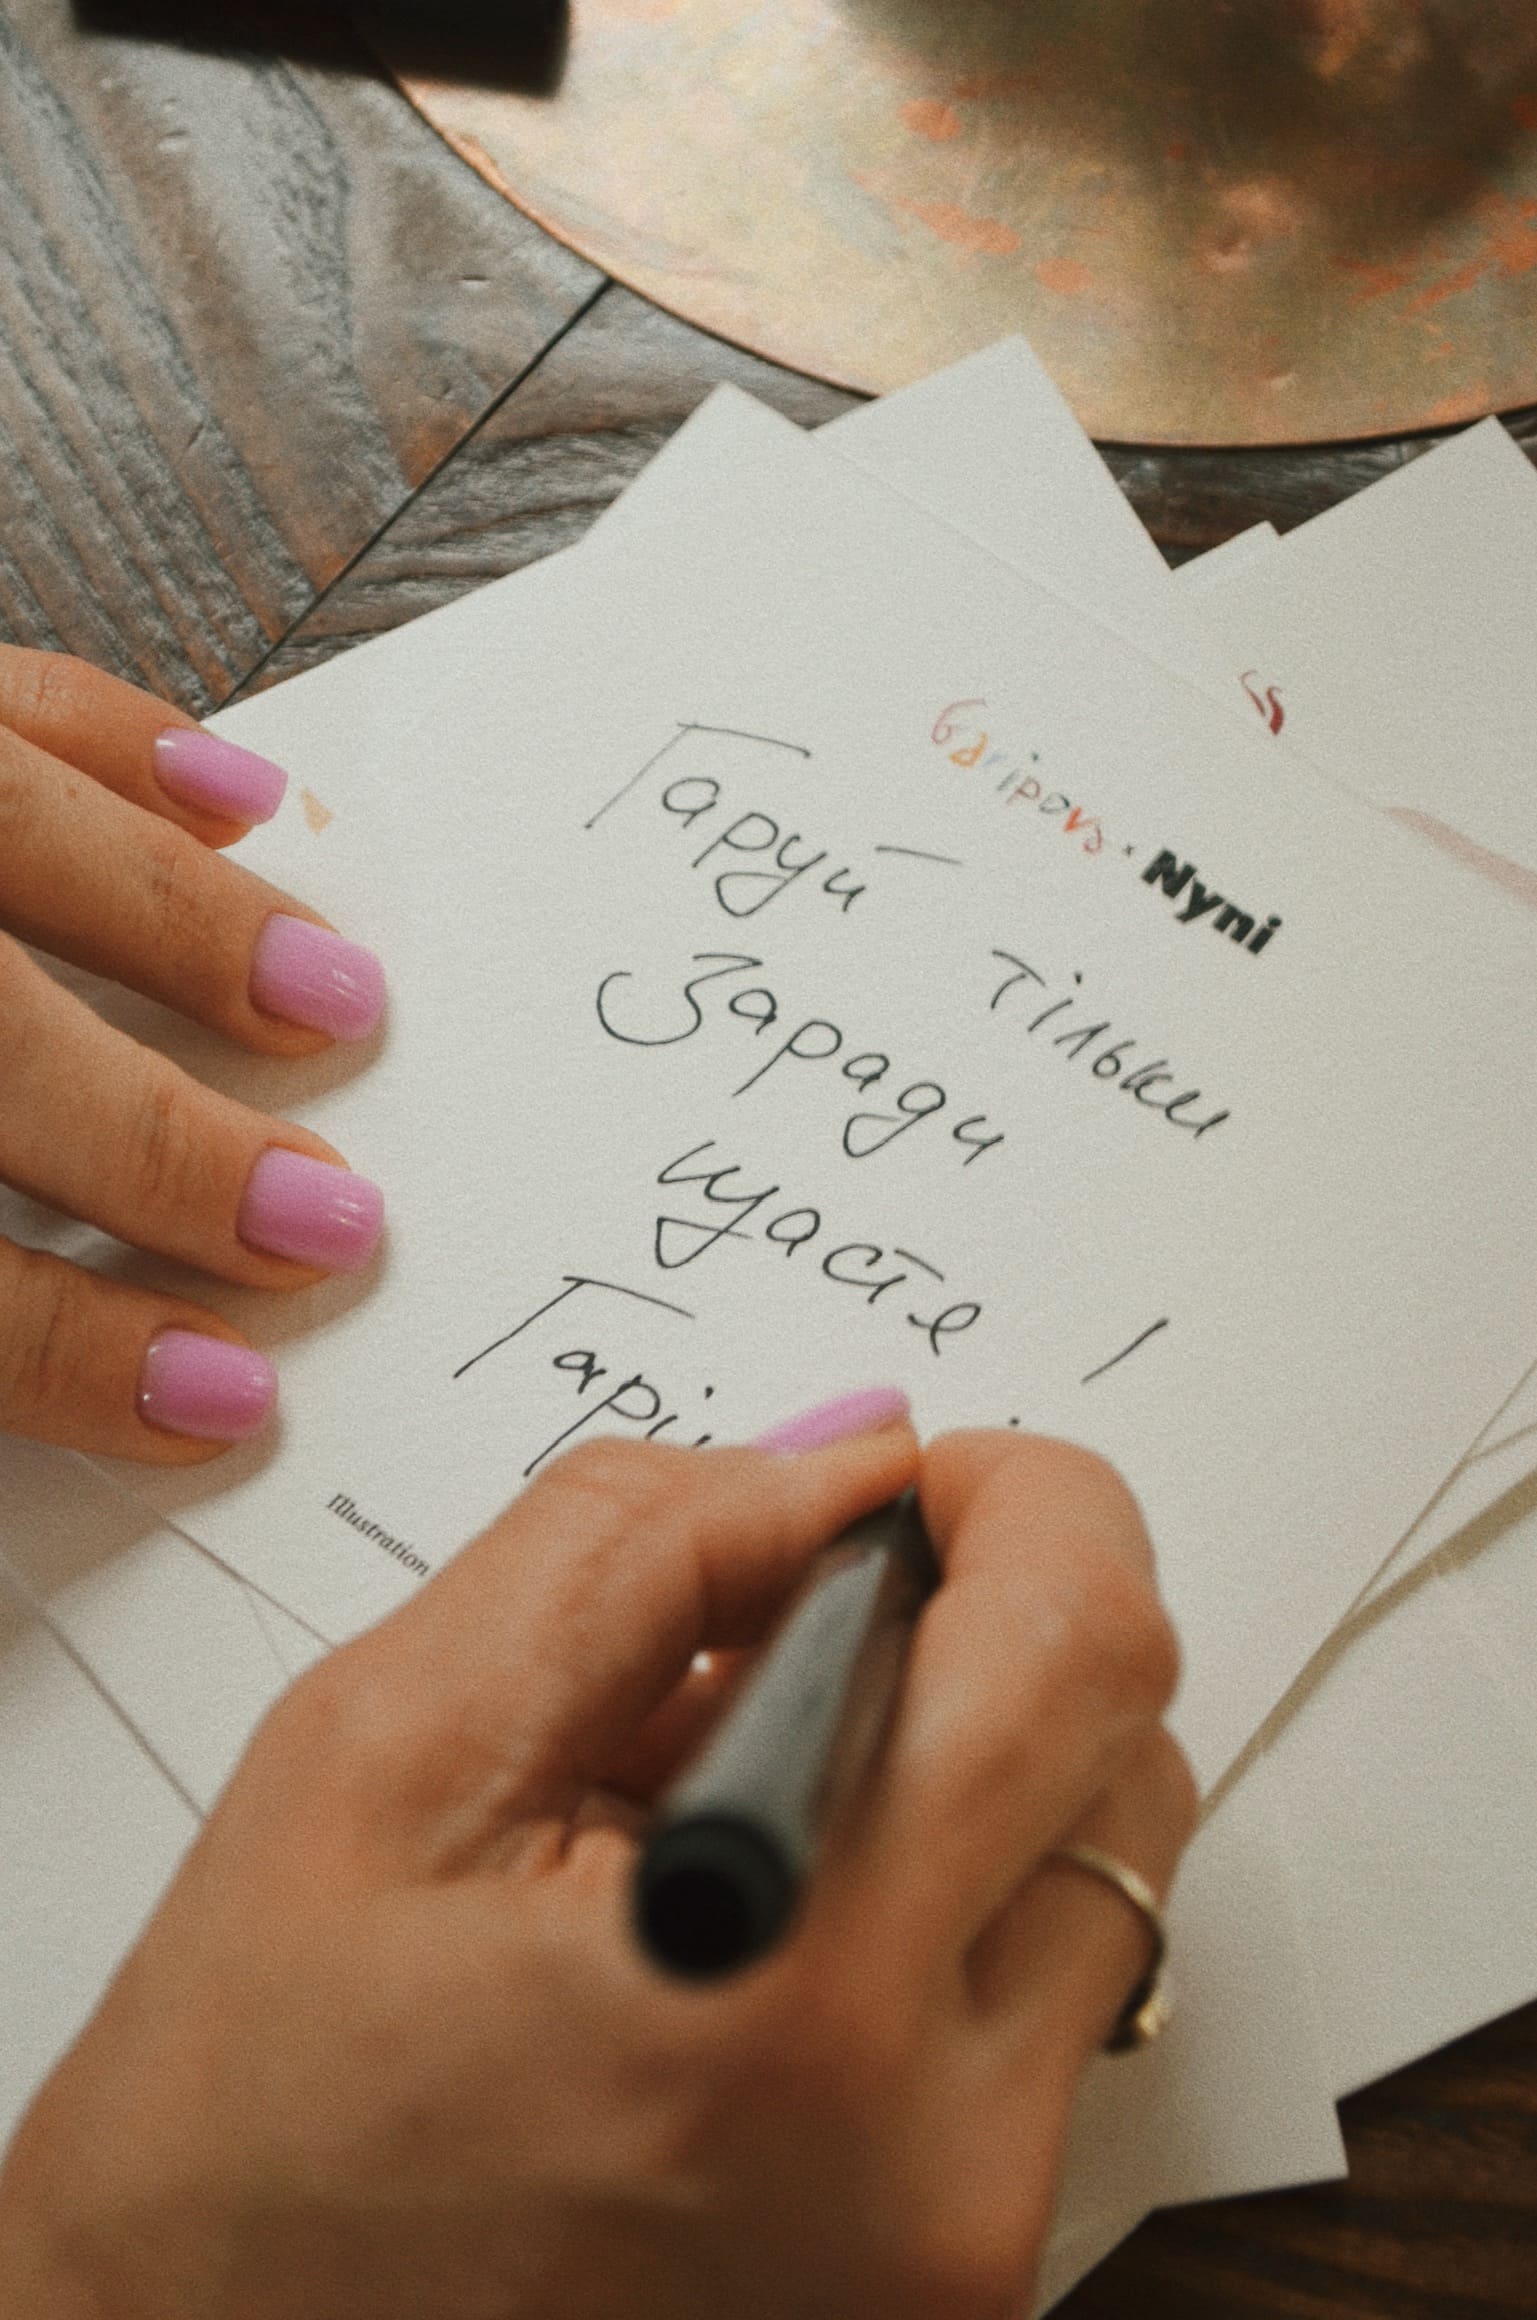 Garipova × Nyni
Гаруй тільки
Заради
щастя !
Illustration